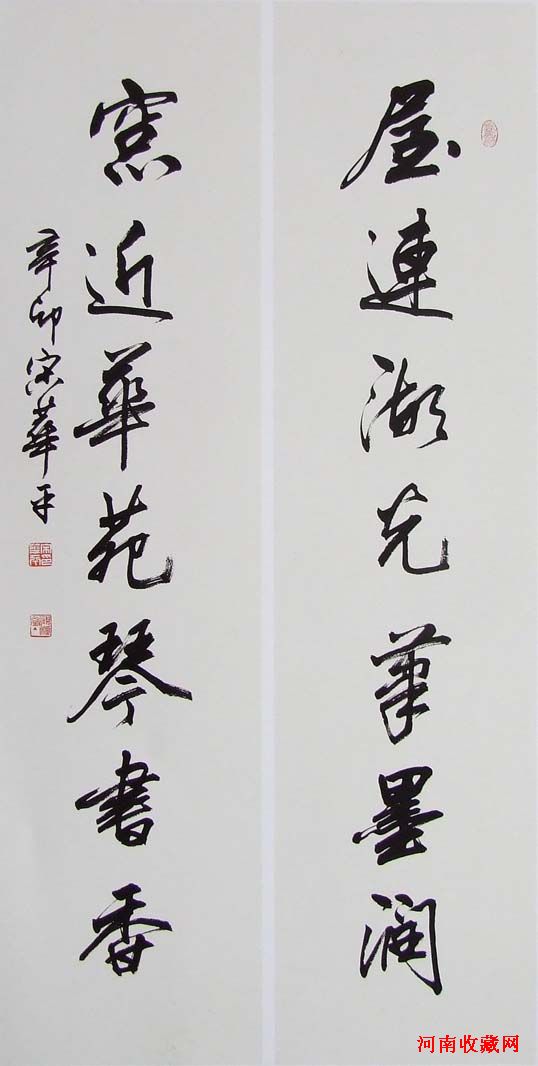 屋連湖光筆墨潤
窓近華苑琴書香
辛卯宋華平
河南收藏网